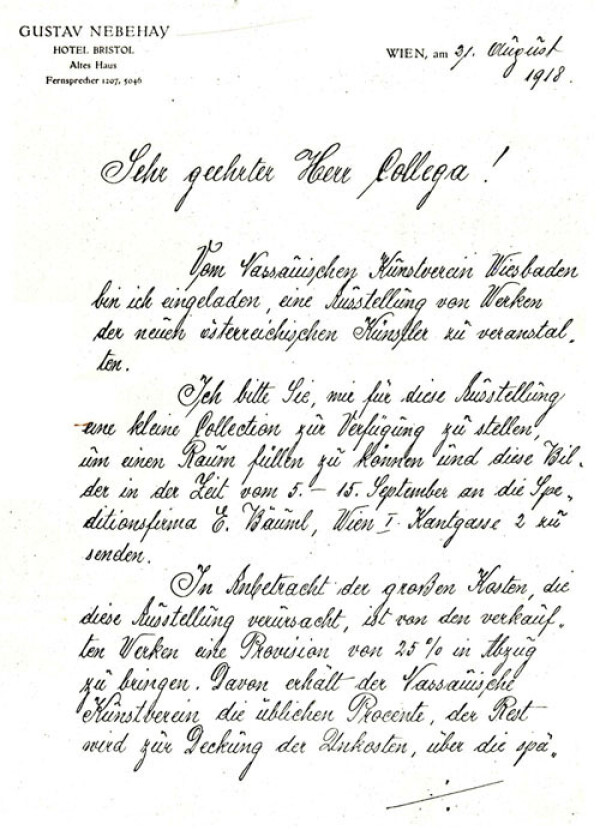 GUSTAV NEBEHAY
HOTEL BRISTOL
Altes Haus
Fernsprecher 1207, 5046
WIEN, am 31. August
1918.
Sehr geehrter Herr Collega!
Vom Nassauischen Kunstverein Wiesbaden
bin ich eingeladen, eine Ausstellung von Werken
der neuen österreichischen Künstler zu veranstal-
ten.
Ich bitte Sie, mir für diese Ausstellung
eine kleine Collection zur Verfügung zu stellen,
um einen Raum füllen zu können und diese Bil-
der in der Zeit vom 5. – 15. September an die Spe-
ditionsfirma E. Bäuml, Wien I. Kantgasse 2 zu
senden.
In Anbetracht der großen Kosten, die
diese Ausstellung verursacht, ist von den verkauf-
ten Werken eine Provision von 25% in Abzug
zu bringen. Davon erhält der Nassauische
Kunstverein die üblichen Procente, der Rest
wird zur Deckung der Unkosten, über die spä-